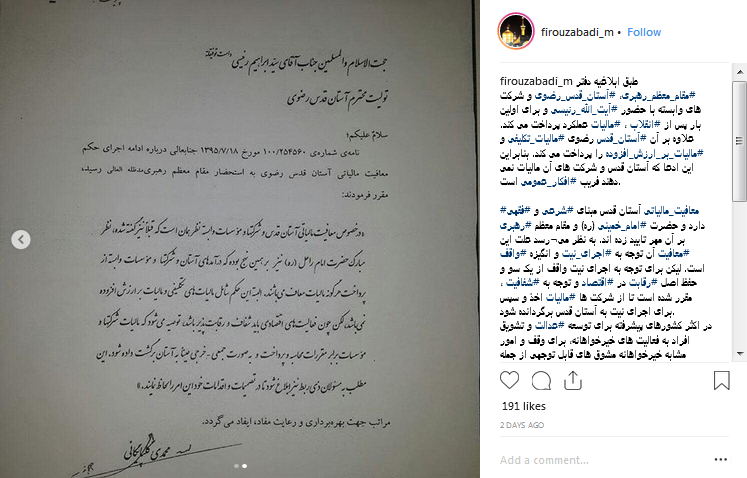 حجت الاسلام و المسلمین جناب آقای سید ابراهیم رئیسی دامت توفیقاته
تولیت محترم آستان قدس رضوی
سلام علیکم؛
نامه‌ی شماره‌ی ۱۰۰/۲۵۴۵۶۰ مورخ ۱۳۹۵/۷/۱۸ جنابعالی درباره ادامه اجرای حکم
معافیت مالیاتی آستان قدس رضوی به استحضار مقام معظم رهبری مدظله العالی رسید،
مقرر فرمودند:
«در خصوص معافیت مالیاتی آستان قدس و شرکتها و مؤسسات وابسته نظر همان است که قبلا نیز گفته شده، نظر
مبارک حضرت امام راحل (ره) نیز بر همین نهج بوده که درآمدهای آستان و شرکتها و مؤسسات وابسته از
پرداخت هرگونه مالیات معاف می‌باشند. البته این حکم شامل مالیات‌های تکلیفی و مالیات بر ارزش افزوده
نمی‌باشد، لکن چون فعالیت‌های اقتصادی باید شفاف و رقابت‌پذیر باشد، توصیه می‌شود که مالیات شرکتها و
مؤسسات برابر مقررات محاسبه و پرداخت و به صورت جمعی-خرجی عیناً به آستان برگشت داده شود. این
مطلب به مسئولان ذی‌ربط نیز ابلاغ شود تا در تصمیمات و اقدامات خود این امر را لحاظ نمایند.»
مراتب جهت بهره‌برداری و رعایت مفاد، ایفاد می‌گردد.
محمدی گلپایگانی
firouzabadi_m • Follow
firouzabadi_m طبق ابلاغیه دفتر
#مقام_معظم_رهبری، #آستان_قدس_رضوی و شرکت
های وابسته با حضور #آیت_الله_رئیسی و برای اولین
بار پس از #انقلاب ، #مالیات عملکرد پرداخت می کند.
علاوه بر آن #آستان_قدس رضوی #مالیات_تکلیفی و
#مالیات_بر_ارزش_افزوده را پرداخت می کند. بنابراین
این ادعا که آستان قدس و شرکت های آن مالیات نمی
دهند فریب #افکار_عمومی است.
#معافیت_مالیاتی آستان قدس مبنای #شرعی و #فقهی
دارد و حضرت #امام_خمینی (ره) و مقام معظم #رهبری
بر آن مهر تایید زده اند. به نظر می¬رسد علت این
#معافیت آن توجه به #اجرای_نیت و انگیزه #واقف
است. لیکن برای توجه به اجرای نیت واقف از یک سو و
حفظ اصل #رقابت در #اقتصاد و توجه به #شفافیت ،
مقرر شده است تا از شرکت ها #مالیات اخذ و سپس
برای اجرای نیت به آستان قدس برگردانده شود.
در اکثر کشورهای پیشرفته برای توسعه #عدالت و تشویق
افراد به فعالیت های خیرخواهانه، برای وقف و امور
مشابه خیرخواهانه مشوق های قابل توجهی از جمله
191 likes
2 DAYS AGO
Add a comment...